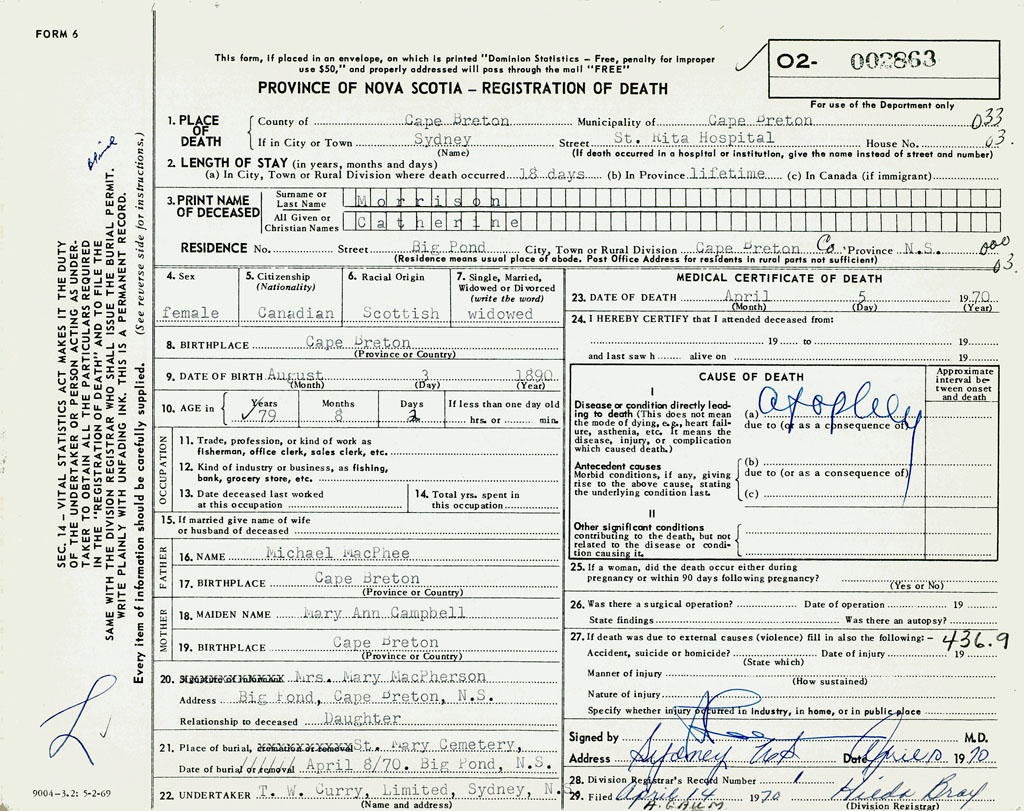 FORM 6
This form, if placed in an envelope, on which is printed "Dominion Statistics – Free, penalty for improper
use $50," and properly addressed will pass through the mail "FREE"
PROVINCE OF NOVA SCOTIA – REGISTRATION OF DEATH
02- 002863
For use of the Department only
1. PLACE OF DEATH County of Cape Breton Municipality of Cape Breton 033
If in City or Town Sydney Street St. Rita Hospital House No. 03.
(Name) (If death occurred in a hospital or institution, give the name instead of street and number)
2. LENGTH OF STAY (in years, months and days)
(a) In City, Town or Rural Division where death occurred 18 days (b) In Province lifetime (c) In Canada (if immigrant)
3. PRINT NAME OF DECEASED Surname or Last Name Morrison
All Given or Christian Names Catherine
RESIDENCE No. Street Big Pond City, Town or Rural Division Cape Breton Co. Province N.S. 000
(Residence means usual place of abode. Post Office Address for residents in rural parts not sufficient) 03.
4. Sex female
5. Citizenship (Nationality) Canadian
6. Racial Origin Scottish
7. Single, Married, Widowed or Divorced (write the word) widowed
8. BIRTHPLACE Cape Breton
(Province or Country)
9. DATE OF BIRTH August 3 1890
(Month) (Day) (Year)
10. AGE in Years 79 Months 8 Days 2 If less than one day old hrs. or min.
OCCUPATION
11. Trade, profession, or kind of work as
fisherman, office clerk, sales clerk, etc.
12. Kind of industry or business, as fishing,
bank, grocery store, etc.
13. Date deceased last worked
at this occupation
14. Total yrs. spent in
this occupation
15. If married give name of wife
or husband of deceased
FATHER
16. NAME Michael MacPhee
17. BIRTHPLACE Cape Breton
(Province or Country)
MOTHER
18. MAIDEN NAME Mary Ann Campbell
19. BIRTHPLACE Cape Breton
(Province or Country)
20. Signature of informant Mrs. Mary MacPherson
Address Big Pond, Cape Breton, N.S.
Relationship to deceased Daughter
21. Place of burial, cremation or removal St. Mary Cemetery,
Date of burial or removal April 8/70. Big Pond, N.S.
22. UNDERTAKER T. W. Curry, Limited, Sydney, N.S.
(Name and address)
MEDICAL CERTIFICATE OF DEATH
23. DATE OF DEATH April 5 1970
(Month) (Day) (Year)
24. I HEREBY CERTIFY that I attended deceased from:
19 to 19
and last saw h alive on 19
CAUSE OF DEATH
Approximate interval between onset and death
I
Disease or condition directly leading to death (This does not mean the mode of dying, e.g., heart failure, asthenia, etc. It means the disease, injury, or complication which caused death.)
(a)
due to (or as a consequence of)
Antecedent causes
Morbid conditions, if any, giving rise to the above cause, stating the underlying condition last.
(b)
due to (or as a consequence of)
(c)
II
Other significant conditions contributing to the death, but not related to the disease or condition causing it.
25. If a woman, did the death occur either during
pregnancy or within 90 days following pregnancy?
(Yes or No)
26. Was there a surgical operation? Date of operation 19
State findings Was there an autopsy?
27. If death was due to external causes (violence) fill in also the following: – 436.9
Accident, suicide or homicide? Date of injury 19
(State which)
Manner of injury
(How sustained)
Nature of injury
Specify whether injury occurred in Industry, in home, or in public place
Signed by M.D.
Address Sydney NS Date April 10 1970
28. Division Registrar's Record Number
29. Filed April 14 1970 Hilda Bray
(Division Registrar)
SEC. 14 – VITAL STATISTICS ACT MAKES IT THE DUTY
OF THE UNDERTAKER OR PERSON ACTING AS UNDER-
TAKER TO OBTAIN ALL THE PARTICULARS REQUIRED
IN THE "REGISTRATION OF DEATH" AND TO FILE THE
SAME WITH THE DIVISION REGISTRAR WHO SHALL ISSUE THE BURIAL PERMIT.
WRITE PLAINLY WITH UNFADING INK. THIS IS A PERMANENT RECORD.
Every item of information should be carefully supplied. (See reverse side for instructions.)
9004-3.2: 5-2-69